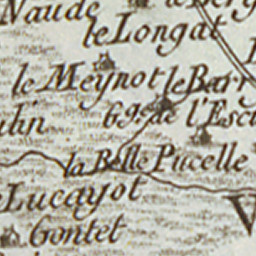 Naude
le Longat
le Meynot le Barr
69. de l'Escu
ulin
la Belle Pucelle
Lucayot
Gontet